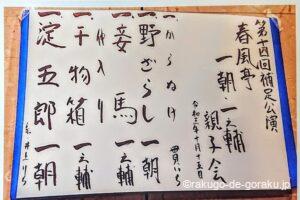 第十四回補足公演
春風亭 一朝 一之輔 親子会
令和三年十月十五日
一からぬけ 貫いち
一野ざらし 一朝
一妾馬 一之輔
仲入り
一干物箱 一之輔
一淀五郎 一朝
©rakugo-de-goraku.jp